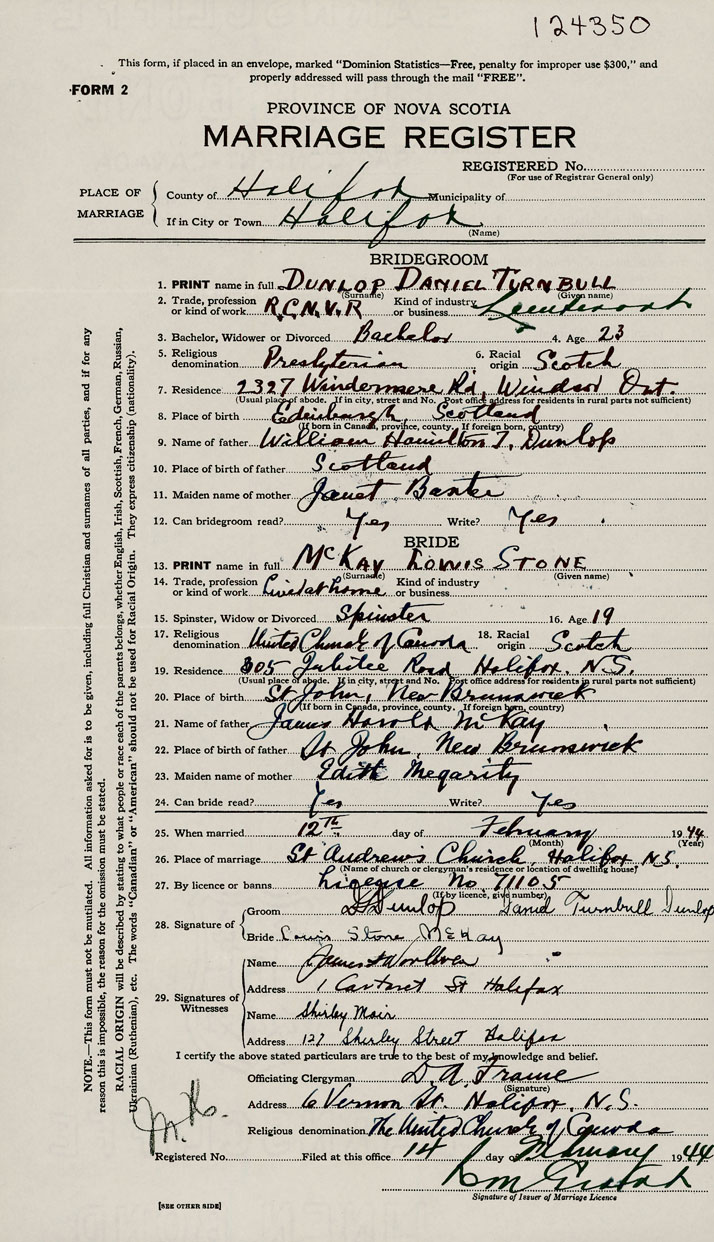 124350
This form, if placed in an envelope, marked "Dominion Statistics—Free, penalty for improper use $300," and
properly addressed will pass through the mail "FREE".
FORM 2
PROVINCE OF NOVA SCOTIA
MARRIAGE REGISTER
REGISTERED No.
(For use of Registrar General only)
PLACE OF MARRIAGE
County of Halifax Municipality of
If in City or Town Halifax
(Name)
BRIDEGROOM
1. PRINT name in full DUNLOP DANIEL TURNBULL
(Surname) (Given name)
2. Trade, profession or kind of work R.C.N.V.R Kind of industry or business Lieutenant
3. Bachelor, Widower or Divorced Bachelor 4. Age 23
5. Religious denomination Presbyterian 6. Racial origin Scotch
7. Residence 2327 Windermere Rd, Windsor Ont.
(Usual place of abode. If in city, street and No. Post office address for residents in rural parts not sufficient)
8. Place of birth Edinburgh, Scotland
(If born in Canada, province, county. If foreign born, country)
9. Name of father William Hamilton T. Dunlop
10. Place of birth of father Scotland
11. Maiden name of mother Janet Baxter
12. Can bridegroom read? Yes Write? Yes
BRIDE
13. PRINT name in full McKAY LOWIS STONE
(Surname) (Given name)
14. Trade, profession or kind of work Lived at home Kind of industry or business
15. Spinster, Widow or Divorced Spinster 16. Age 19
17. Religious denomination United Church of Canada 18. Racial origin Scotch
19. Residence 305 Jubilee Road Halifax. N.S.
(Usual place of abode. If in city, street and No. Post office address for residents in rural parts not sufficient)
20. Place of birth St John, New Brunswick
(If born in Canada, province, county. If foreign born, country)
21. Name of father James Harold McKay
22. Place of birth of father St John, New Brunswick
23. Maiden name of mother Edith Megarity
24. Can bride read? Yes Write? Yes
25. When married 12th day of February 1944
(Month) (Year)
26. Place of marriage St Andrew's Church, Halifax N.S.
(Name of church or clergyman's residence or location of dwelling house)
27. By licence or banns License No 71105
(If by licence, give number)
28. Signature of
Groom Dunlop Daniel Turnbull Dunlop
Bride Lowis Stone McKay
29. Signatures of Witnesses
Name James
Address 1 Carteret St Halifax
Name Shirley Mair
Address 127 Shirley Street Halifax
I certify the above stated particulars are true to the best of my knowledge and belief.
Officiating Clergyman D. A. Frame
(Signature)
Address 6 Vernon St. Halifax, N.S.
Religious denomination The United Church of Canada
Registered No. Filed at this office 14 day of February 1944
Signature of Issuer of Marriage Licence
[SEE OTHER SIDE]
NOTE.—This form must not be mutilated. All information asked for is to be given, including full Christian and surnames of all parties, and if for any
reason this is impossible, the reason for the omission must be stated.
RACIAL ORIGIN will be described by stating to what people or race each of the parents belongs, whether English, Irish, Scottish, French, German, Russian,
Ukrainian (Ruthenian), etc. The words "Canadian" or "American" should not be used for Racial Origin. They express citizenship (nationality).